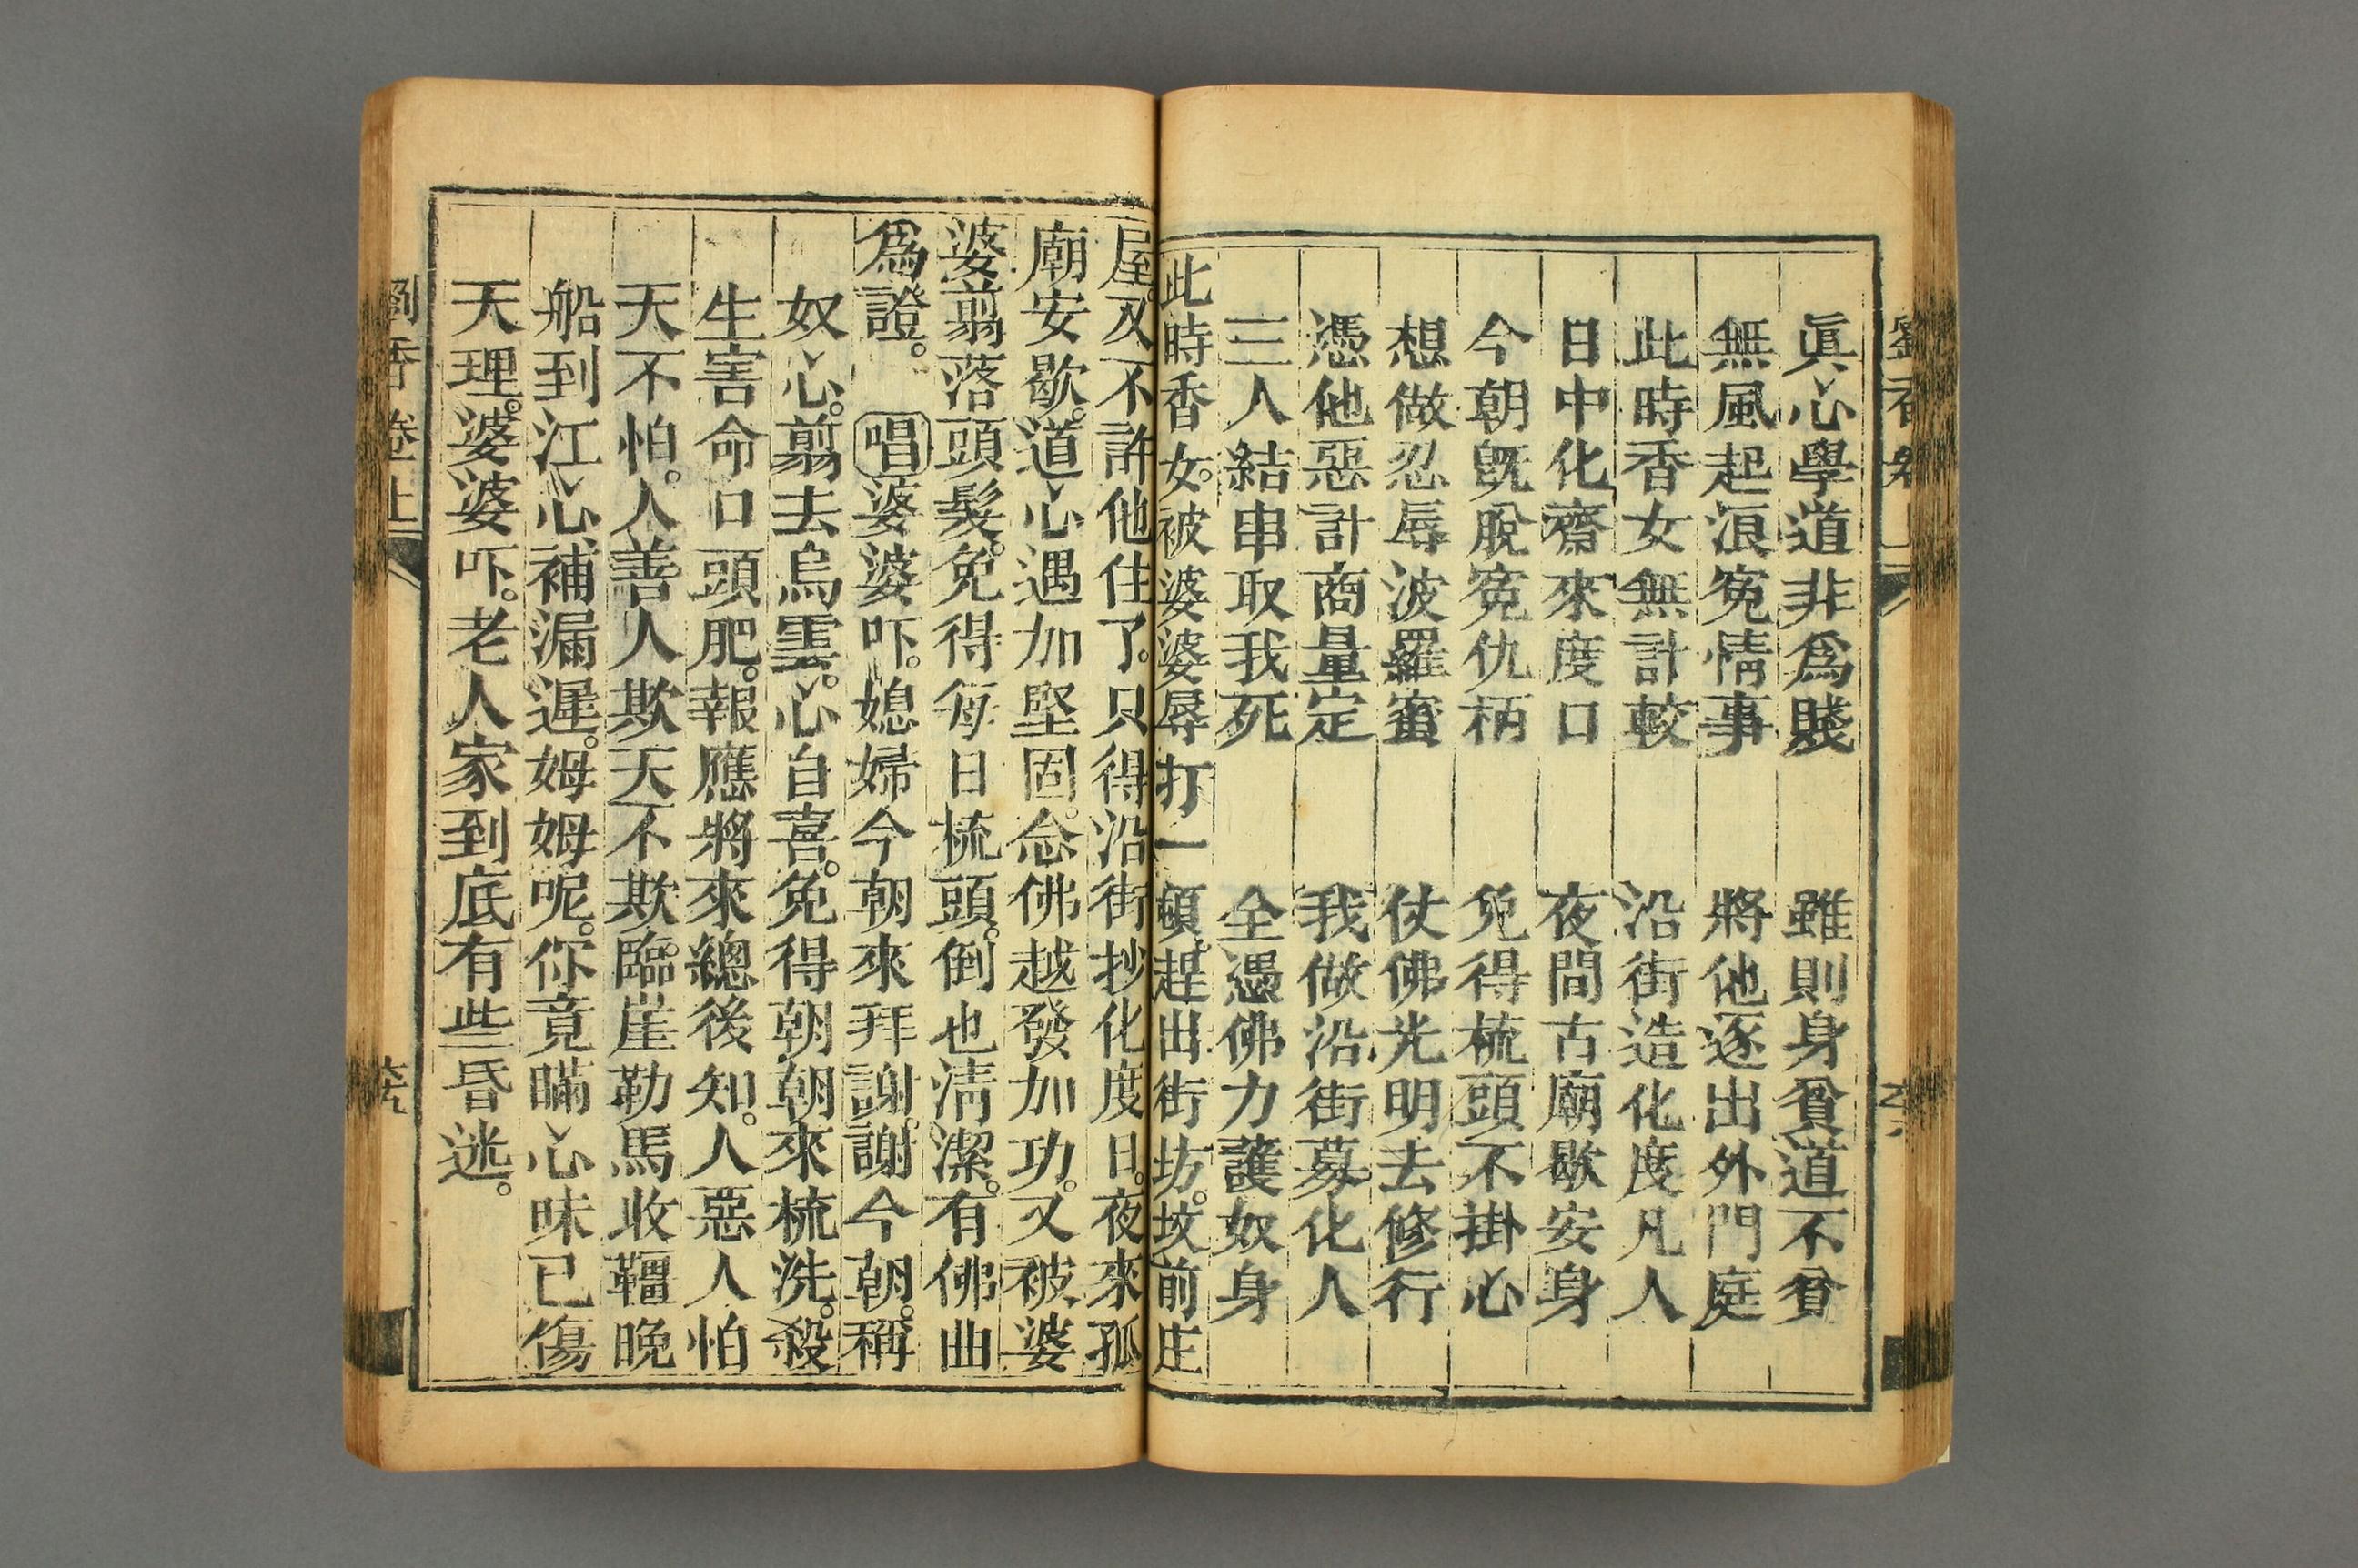 眞心學道非爲賤　雖則身貧道不貧
無風起浪寃情事　將他逐出外門庭
此時香女無計較　沿街造化度凡人
日中化齋來度口　夜間古廟歇安身
今朝旣脫寃仇柄　免得梳頭不掛心
想做忍辱波羅蜜　仗佛光明去修行
憑他惡計商量定　我做沿街募化人
三人結串取我死　全憑佛力護奴身
此時香女。被婆婆辱打一頓。趕出街坊。坟前庄
屋。又不許他住了。只得沿街抄化度日。夜來孤
廟安歇。道心遇加堅固。念佛越發加功。又被婆
婆剪落頭髮。免得每日梳頭。倒也淸潔。有佛曲
爲證。　唱婆婆吓。媳婦今朝來拜謝。謝今朝。稱
奴心。剪去烏雲。心自喜。免得朝朝來梳洗。殺
生害命口頭肥。報應將來總後知。人惡人怕
天不怕。人善人欺天不欺。臨崖勒馬收韁晚
船到江心補漏遲。姆姆呢。你竟瞞心昧己傷
天理。婆婆吓。老人家到底有些昏迷。
劉香卷上